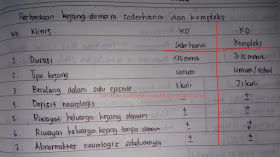 Perbedaan kejang demam sederhana dan kompleks
No. Klinis KD KD
Sederhana Kompleks
1 Durasi <15 menit ≥15 menit
2 Tipe kejang umum umum/fokal
3 Berulang dalam satu episode 1 kali >1 kali
4 Defisit neurologis - ±
5 Riwayat keluarga kejang demam ± ±
6 Riwayat keluarga kejang tanpa demam ± ±
7. Abnormalitas neurologis sebelumnya ± ±